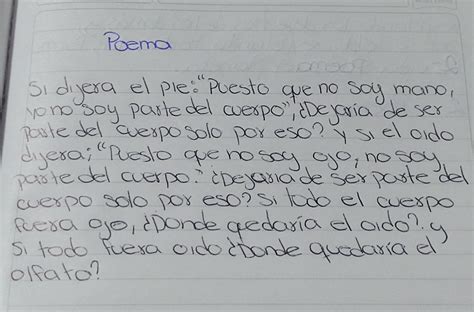 Poema
Si dijera el pie: "Puesto que no soy mano,
yo no soy parte del cuerpo", ¿Dejaría de ser
parte del cuerpo solo por eso? y si el oido
dijera; "Puesto que no soy ojo, no soy
parte del cuerpo." ¿Dejaria de ser parte del
cuerpo solo por eso? Si todo el cuerpo
fuera ojo, ¿Donde qedaría el oido?. y
si todo fuera oido ¿Donde quedaría el
olfato?